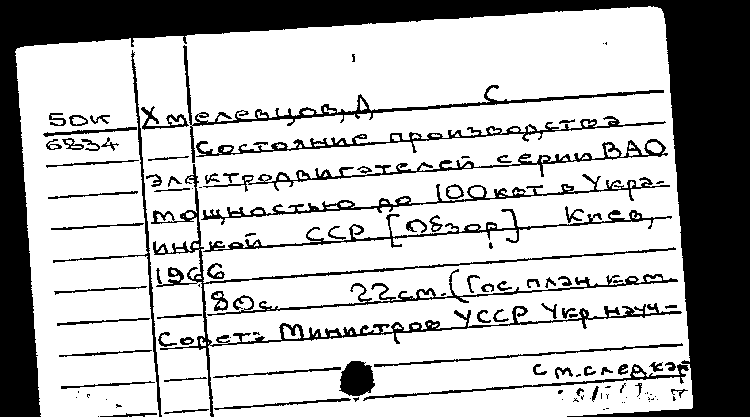 С
50к Хмелевцов, Д
6834 Состояние производства
электродвигателей серии ВАО
мощностью до 100 квт в Укра-
инской ССР [Обзор] Киев,
1966
80с. 22см. (Гос. план. ком.
Совета Министров УССР Укр. науч-
см. след. кар